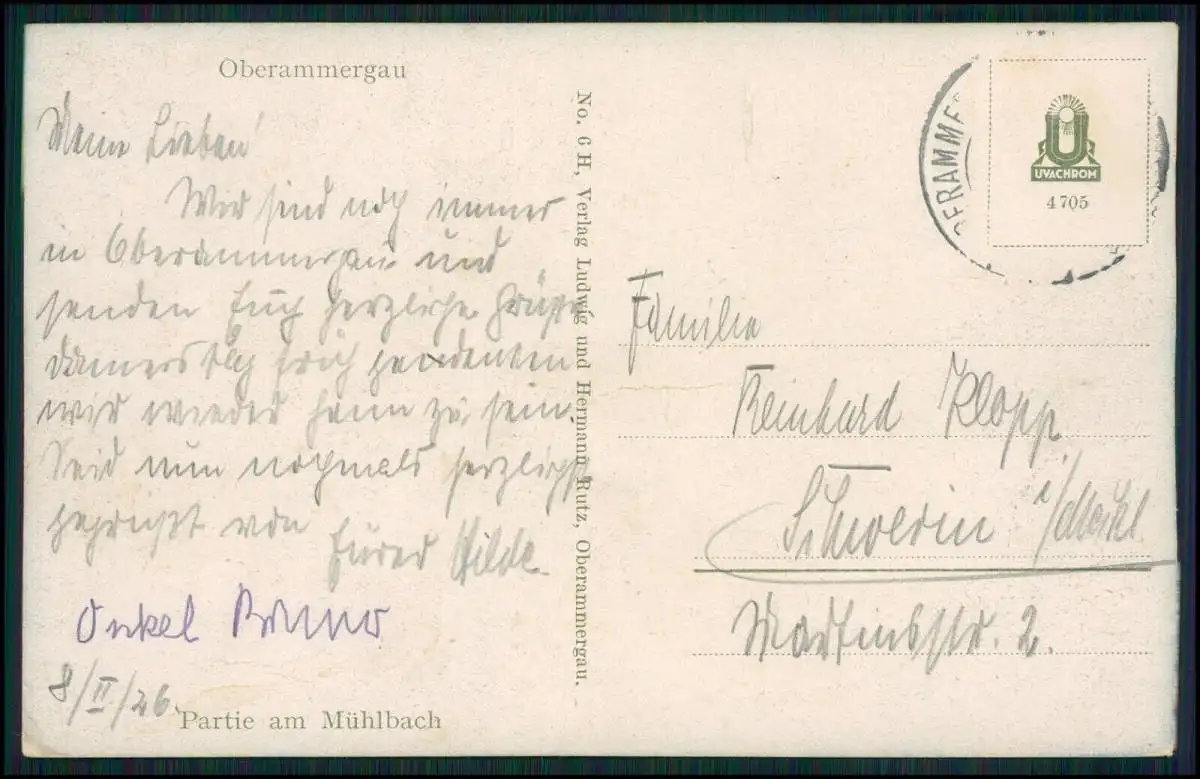 Oberammergau
Meine Lieben!
Wir sind noch immer
in Oberammergau und
senden Euch herzliche Grüße
Donnerstag früh gedenken
wir wieder heim zu sein.
Seid nun nochmals herzlichst
gegrüßt von
Eurer Hilde.
Onkel Bruno
8/II/26.
Partie am Mühlbach
No. 6 H, Verlag Ludwig und Hermann Rutz, Oberammergau.
UVACHROM
4705
Familie
Reinhard Klopp.
Schwerin i/Meckl.
Martinsstr. 2.